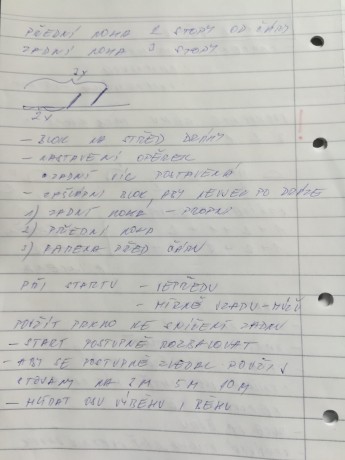 PŘEDNÍ NOHA 2 STOPY OD ČÁRY
ZADNÍ NOHA 3 STOPY
2x
2x
- BLOK NA STŘED DRÁHY
- NASTAVENÍ OPĚREK
ZADNÍ VÍC POSTAVENÁ
- BLOK, ABY NEUJEL PO DRÁZE
1) ZADNÍ NOHA -
2) PŘEDNÍ NOHA
3) RAMENA PŘED ČÁRU
PŘI STARTU - ZEPŘEDU
- MÍRNĚ ZZADU - MÍČ
POUŽÍT KE SNÍŽENÍ ZADKU
- START POSTUPNĚ ROZBALOVAT
- ABY SE POSTUPNĚ ZVEDAL POUŽÍT
NA 2M 5M 10M
- HLÍDAT OSU VÝBĚHU I BĚHU